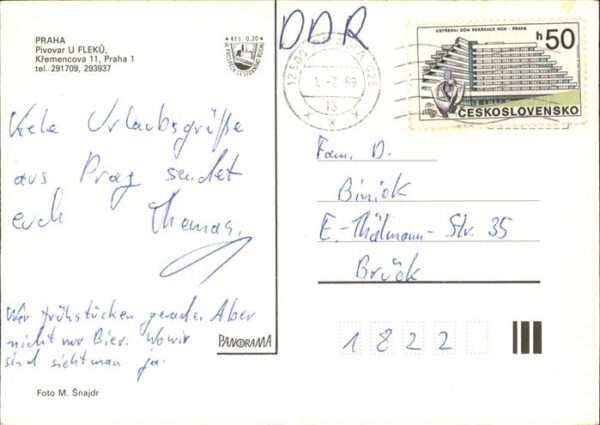 PRAHA
Pivovar U FLEKŮ,
Křemencova 11, Praha 1
tel. 291709, 293937
Kčs 0,20
DDR
ÚSTŘEDNÍ DŮM REKREACE ROH - PRAHA
h50
ČESKOSLOVENSKO
Viele Urlaubsgrüße
aus Prag sendet
euch Thomas.
Wir frühstücken gerade. Aber
nicht nur Bier. Wo wir
sind sieht man ja.
Fam. D.
Biniok
E.-Thälmann-Str. 35
Brück
1822
PANORAMA
Foto M. Šnajdr